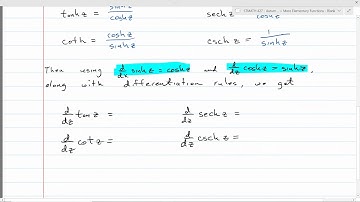 tanh z = sinh z / cosh z    sech z = 1 / cosh z
coth z = cosh z / sinh z    csch z = 1 / sinh z
Then using d/dz sinh z = cosh z and d/dz cosh z = sinh z,
along with differentiation rules, we get
d/dz tan z =    d/dz sech z =
d/dz cot z =    d/dz csch z =